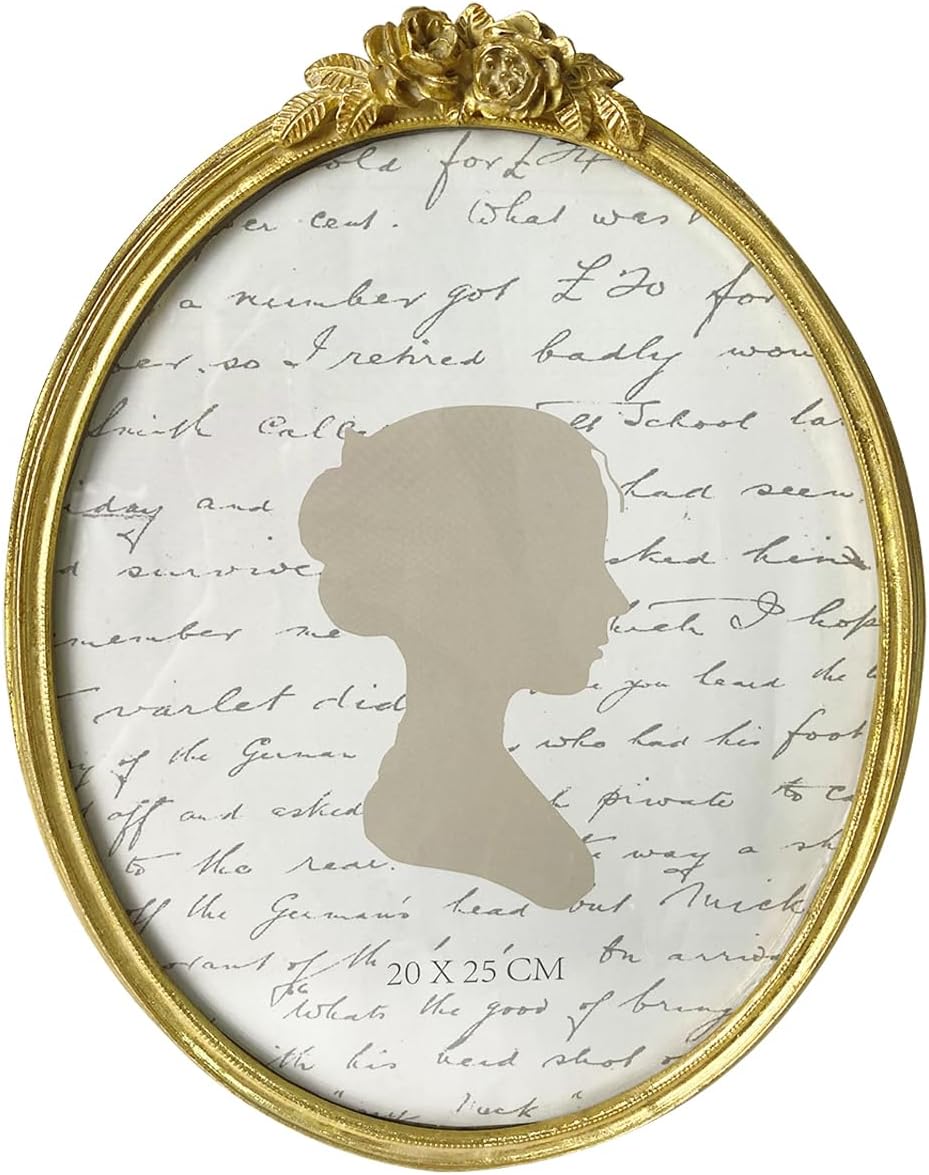 old for £24
per cent. What was
a number got £20 for
ber, so I retired badly wou
Smith Calle at School la
iday and had seen
d survive sked him
member me which I hop
varlet did you heard the
y of the German who had his foot
off and asked private to ca
to the rear. way a sh
off the German's head but Mick
orant of th on arriv
20 X 25 CM
Whats the good of bring
ith his head shot o